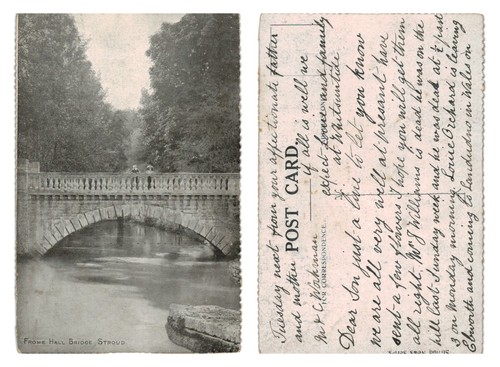 FROME HALL BRIDGE, STROUD
POST CARD.
FOR CORRESPONDENCE.
Dear Son just a line to let you know
we are all very well at present have
sent a few flowers I hope you will get them
all right. Mr J Williams is dead he was on the
hill last Sunday week and he was dead at ½ past
3 on Monday morning Louie Orchard is leaving
Ebworth and coming to Llandudno in Wales on
Tuesday next from your affectionate father
and mother if all is well we
Mr C Workman expect Louie and family
at Whitsuntide